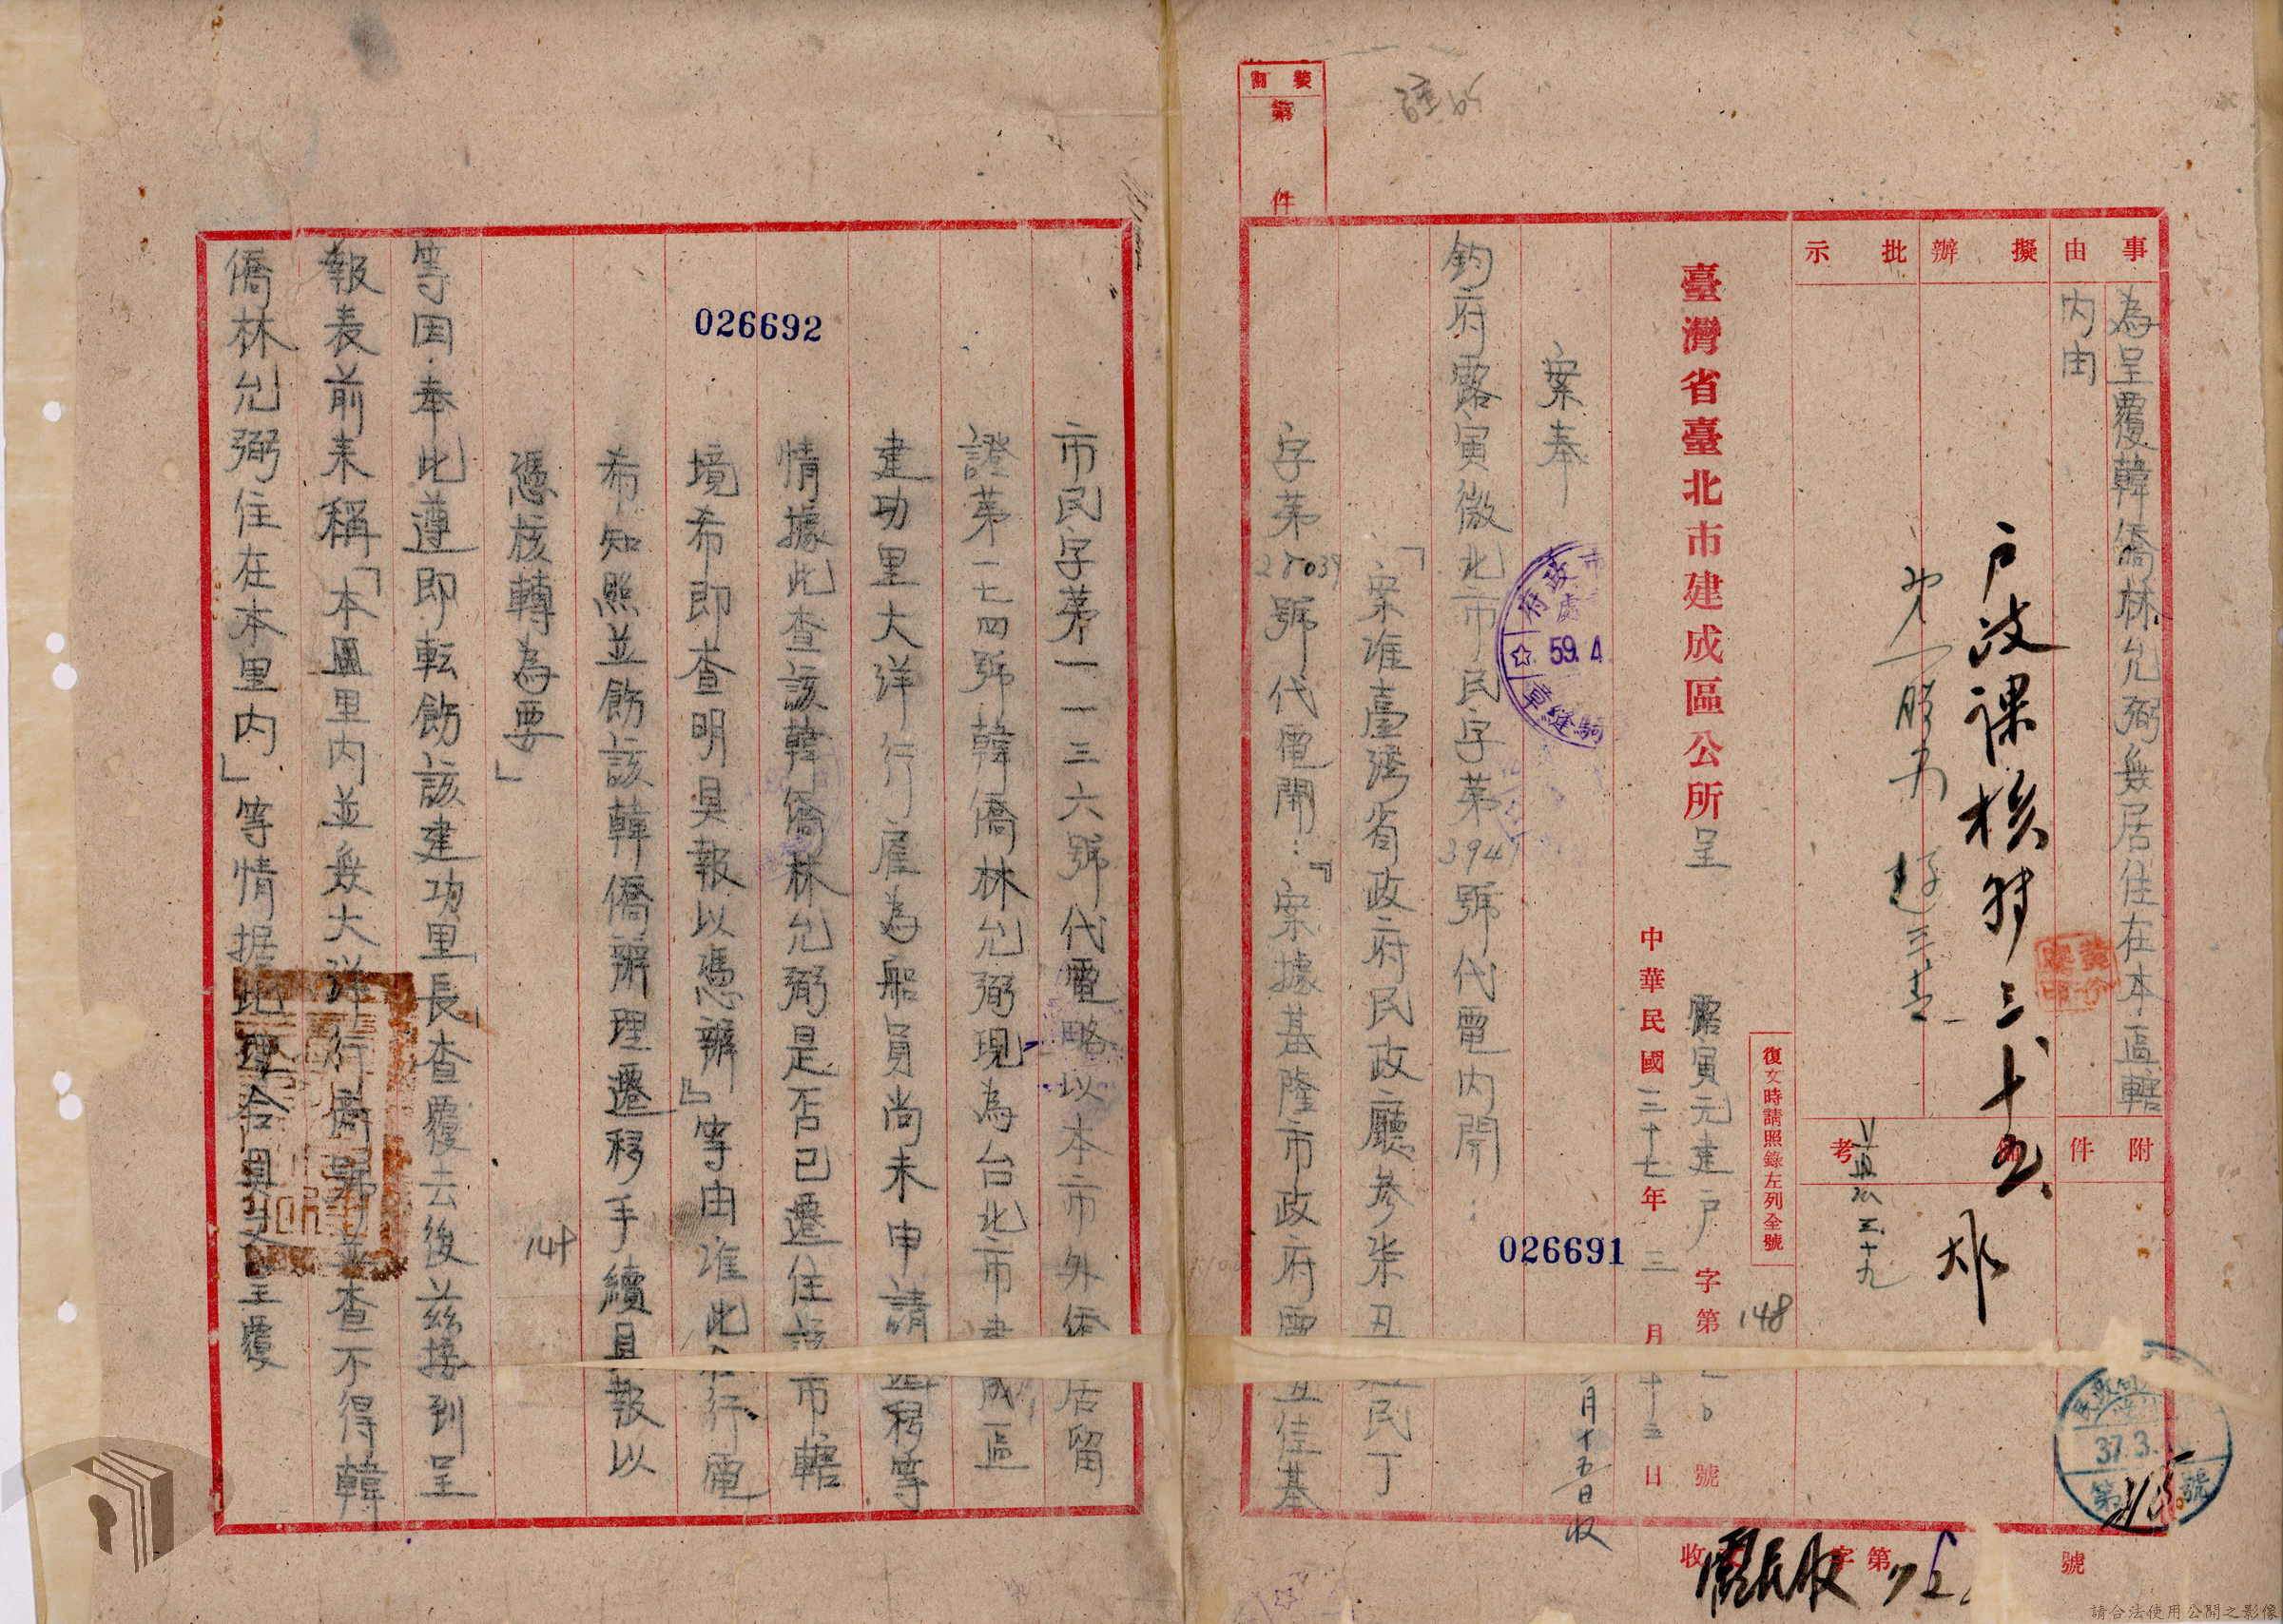 裝訂
第
件
事由
為呈覆韓僑林允弼無居住在本區轄
內由
擬辦
批示
戶政課核辦 三、十五
附件
備考
臺灣省臺北市建成區公所呈
露寅元建戶字第
號
148
復文時請照錄左列全號
中華民國三十七年三月十三日
月十五日收
026691
案奉
鈞府露寅微北市民字第3949號代電內開：
「案准臺灣省政府民政廳參柒丑
民丁
字第28039號代電開：『案據基隆市政府
基
市民字第一一三六號代電略以本市外僑居留
證第一七四號韓僑林允弼現為台北市建成區
建功里大洋行雇為船員尚未申請遷移等
情據此查該韓僑林允弼是否已遷住該市轄
境希即查明具報以憑辦』等由准此
行電
希知照並飭該韓僑辦理遷移手續具報以
憑核轉為要」
等因奉此遵即転飭該建功里長查覆去後茲接到呈
報表前來稱「本區里內並無大洋行商號並查不得韓
僑林允弼住在本里內」等情据此理合具文呈覆
026692
148
市政府
59.4
騎縫章
37.3.
第
號
收
字第
號
請合法使用公開之影像